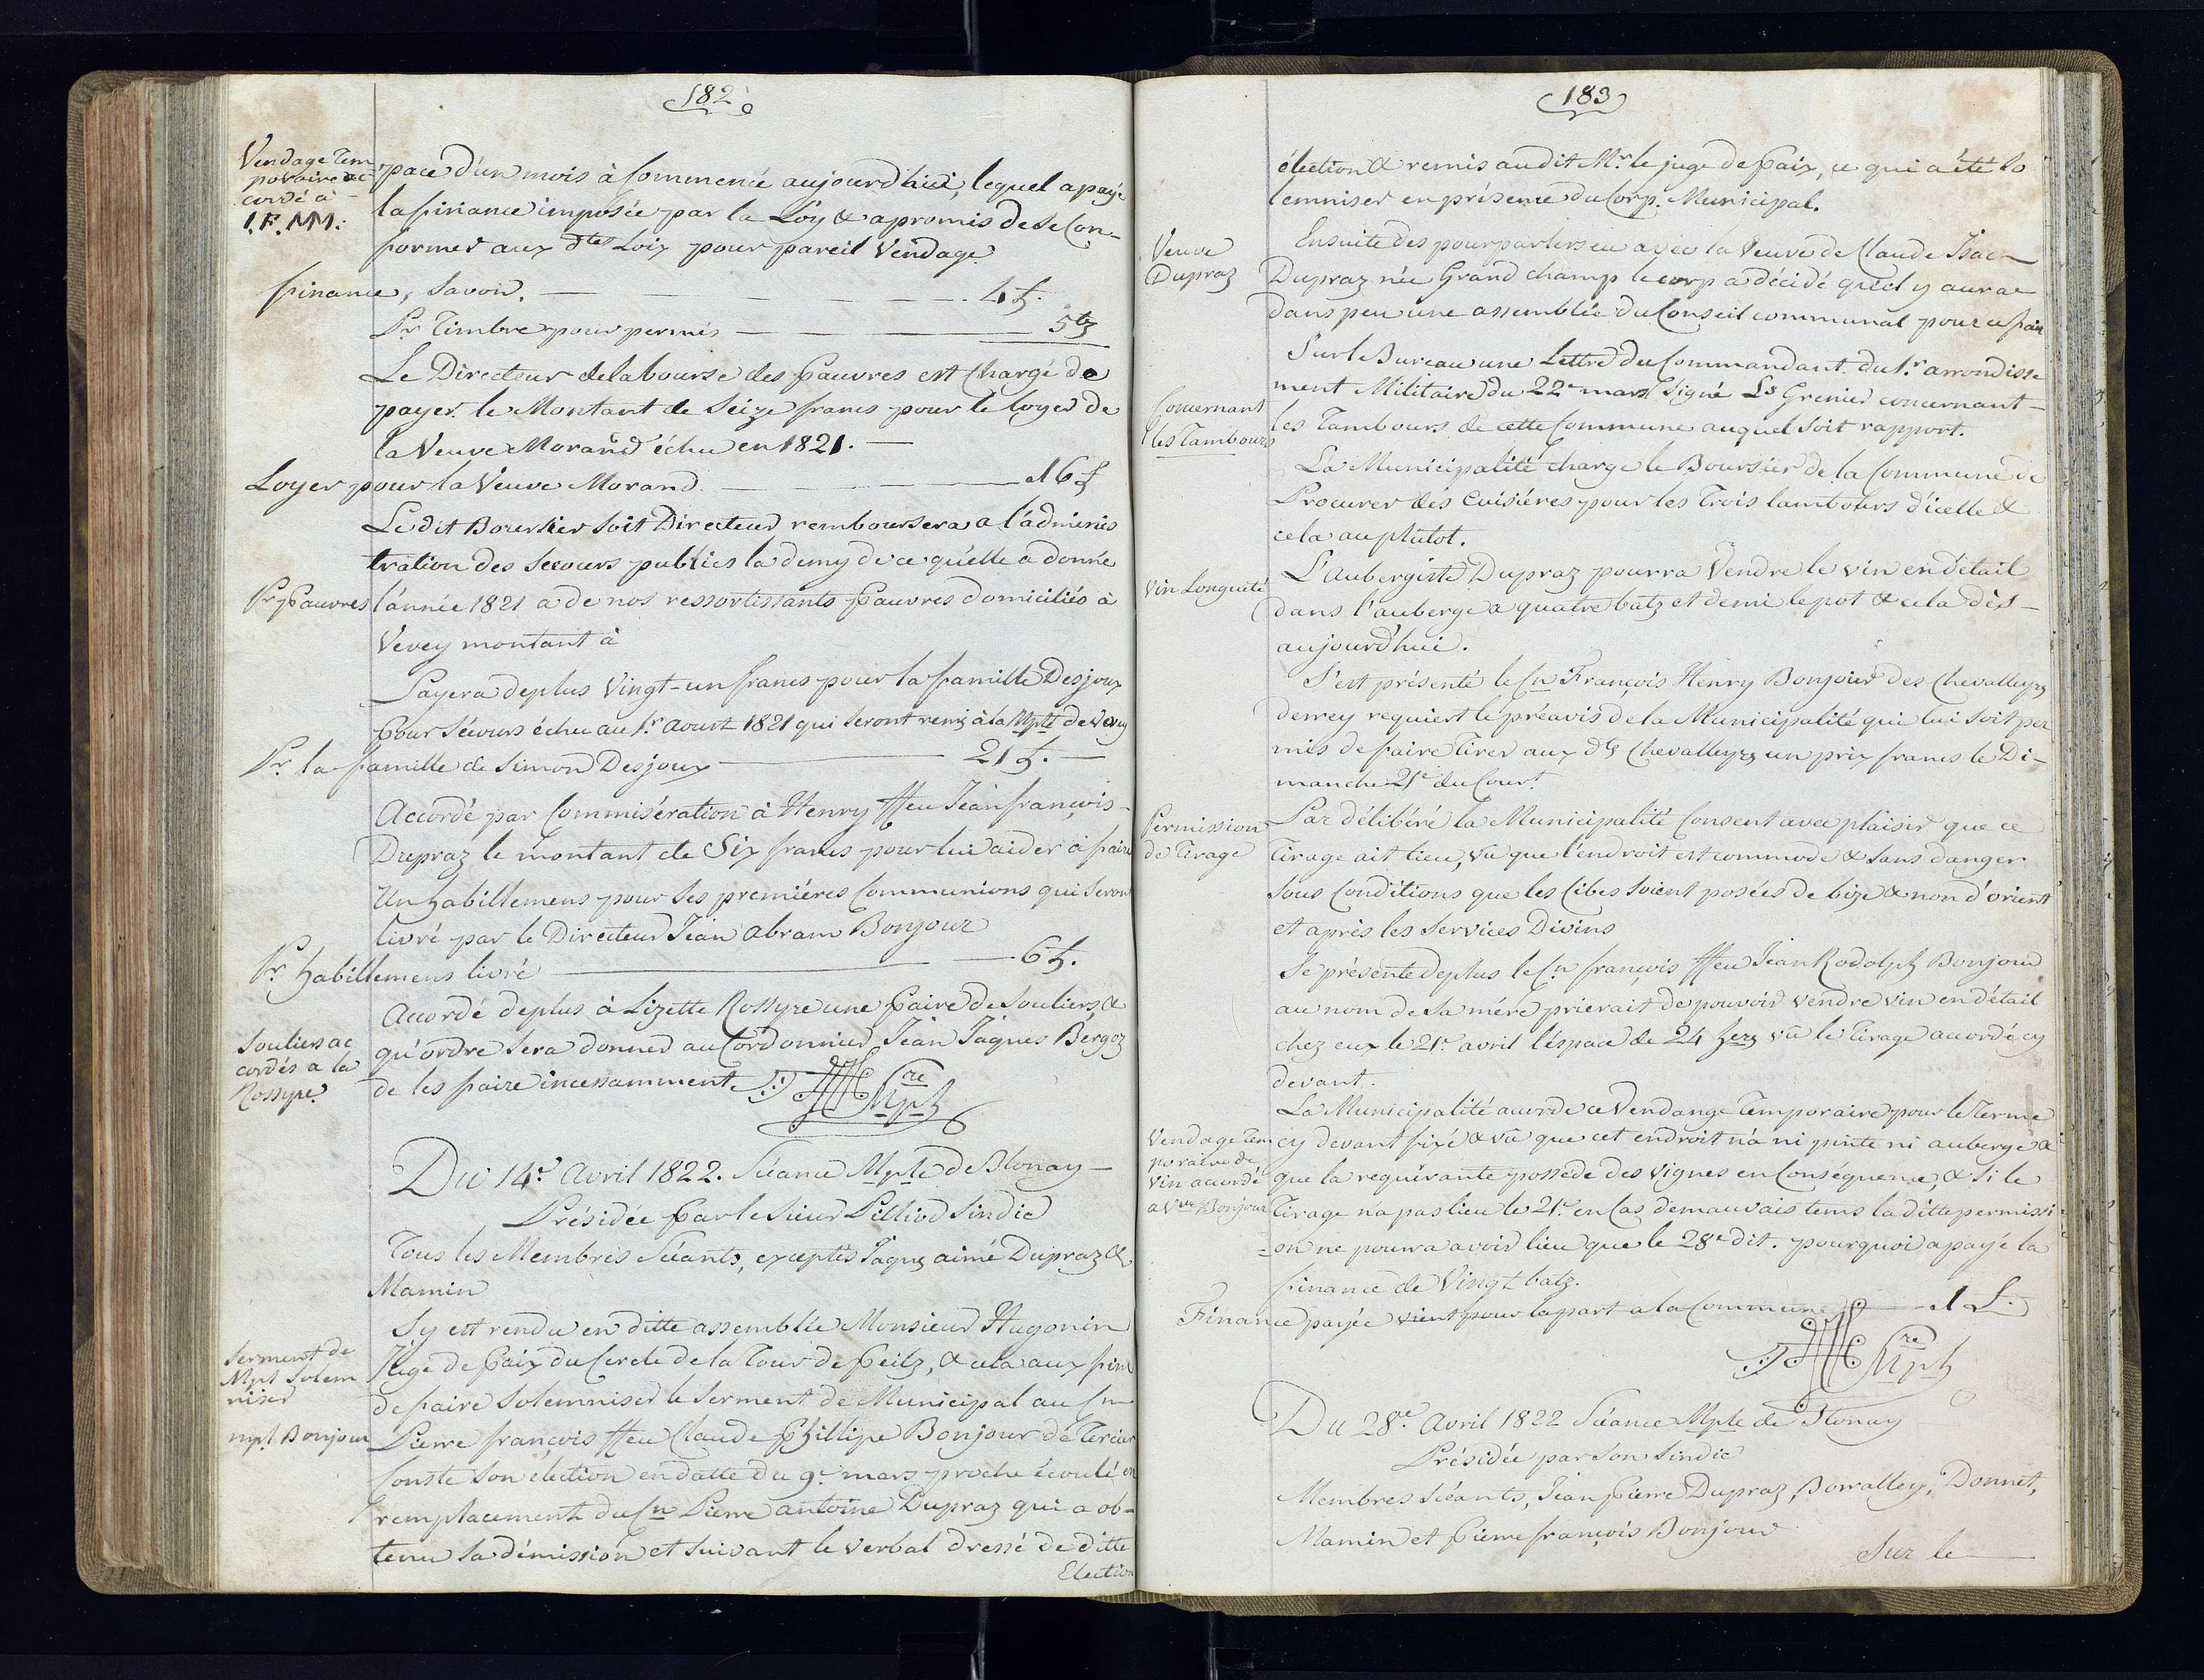 182
Vendage tem
poraire ac
cordé à
I. F. MM:
pace d'un mois à Commencé aujourd'hui, lequel a payé
la finance imposée par la Loy & a promis de se Con-
former aux dtes Loix pour pareil Vendage
finance, Savoir. — 4 f.
Pr. Timbre pour permis — 5 bz
Le Directeur de la bourse des pauvres est Chargé de
payer le Montant de Seize francs pour le loyer de
la Veuve Morand échu en 1821. —
Loyer pour la Veuve Morand — 16 f
Le dit Boursier soit Directeur remboursera a l'adminis
tration des secours publics la demy de ce qu'elle a donné
Pr. pauvres
l'année 1821 a de nos ressortissants pauvres domiciliés à
Vevey montant à
Payera deplus Vingt-un francs pour la famille Desjoux
pour Sécours échu au 1r. aoust 1821 qui seront remis à la Mplté de Vevey
Pr. la famille de Simon Desjoux — 21 f. —
Accordé par Commisération à Henry ffeu Jean françois-
Dupraz le montant de Six francs pour lui aider à faire
un habillemens pour ses premiéres Communions qui seront
livré par le Directeur Jean Abram Bonjour
Pr. habillemens livré — 6 f.
Accordé deplus à Lizette Rossyre une paire de Souliers, &
Souliers ac
cordés a la
Rossyre
qu'ordre sera donner au Cordonnier Jean Jaques Bergoz
de les faire incessamment
Mph Cre
Du 14e. Avril 1822. Séance Mple de Blonay —
Présidée par le Sieur Pilliod Sindic
Tous les Membres Séants, exceptés Jaques aimé Dupraz &
Mamin
S'y est rendu en ditte assemblée Monsieur Hugonin
Serment de
Mpl Solem
niser
mpl. Bonjour
Juge de paix du Cercle de la Tour de peilz, & cela aux fins
de faire Solemniser le Serment de Municipal au Cn
Pierre françois ffeu Claude phillipe Bonjour de Tercier
Conste son election en datte du 9e. mars proche écoulé en
remplacement du Cn Pierre antoine Dupraz qui a ob-
tenu sa démission et suivant le verbal dressé de ditte
Election
183
élection & remis au dit Mr. le juge de paix, ce qui a été so
lemniser en présence du Corp. Municipal.
Veuve
Dupraz
Ensuite des pourparlers eu avec la Veuve de Claude Isac
Dupraz née Grand champ le corp a décidé qu'il y aurae
dans peu une assemblée du Conseil communal pour ce faire
Sur le Bureau une Lettre du Commandant du 1r. arrondisse
ment Militaire du 22e mars Signé Ls Grenier concernant
Concernant
les Tambours
les Tambours de cette Commune auquel soit rapport.
La Municipalité charge le Boursier de la Commune de
Procurer des Cuisiéres pour les Trois tambours d'icelle &
cela au plutot.
Vin Longueté
L'Aubergiste Dupraz pourra Vendre le vin en détail
dans l'auberge a quatre batz et demi le pot & cela dès-
aujourd'hui.
S'est présenté le Cn François Henry Bonjour des Chevalleyrs
derrey requiert le préavis de la Municipalité qui lui soit per
mis de faire Tirer aux ds Chevalleyrs un prix francs le Di-
manche 21e du Court.
Permission
de Tirage
Par délibéré la Municipalité Consent avec plaisir que ce
Tirage ait lieu, vu que l'endroit est commode & sans danger
sous Conditions que les Cibes soient posées de bize & non d'orient
et après les Services Divins
Se présente deplus le Cn françois ffeu Jean Rodolph Bonjour
au nom de Sa mére prierait de pouvoir vendre vin en détail
chez eux le 21e. avril l'éspace de 24 hers vû le Tirage accordé cy
devant.
La Municipalité accorde ce Vendange Temporaire pour le Terme
Vendage tem
poraire de
vin accordé
a Vve Bonjour
cy devant fixé & vû que cet endroit n'a ni pinte ni auberge &
que la requérante posséde des vignes en Conséquence, & Si le
Tirage n'a pas lieu le 21e. en Cas de mauvais tems la ditte permissi
=on ne pourra avoir lieu que le 28e dit. pourquoi a payé la
finance de Vingt batz.
Finance payée vient pour la part a la Commune — 1 L.
Mph Cre
Du 28e. Avril 1822 Séance Mple de Blonay
Présidée par son Sindic
Membres Séants, Jean pierre Dupraz, Borralley, Donnet,
Mamin et pierre françois Bonjour
Sur le